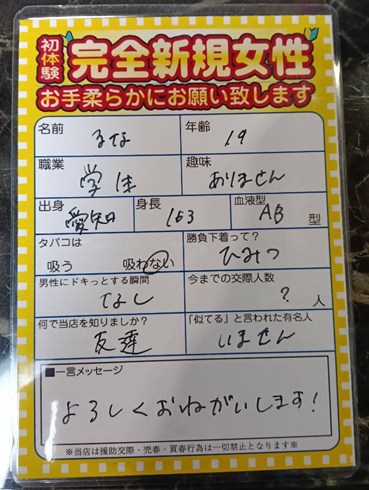 初体験 完全新規女性
お手柔らかにお願い致します
名前 るな 年齢 19
職業 学生 趣味 ありません
出身 愛知 身長 163 血液型 AB 型
タバコは 吸う 吸わない 勝負下着って? ひみつ
男性にドキっとする瞬間 なし 今までの交際人数 ? 人
何で当店を知りましたか? 友達 「似てる」と言われた有名人 いません
■一言メッセージ
よろしくおねがいします!
※当店は援助交際・売春・買春行為は一切禁止となります※